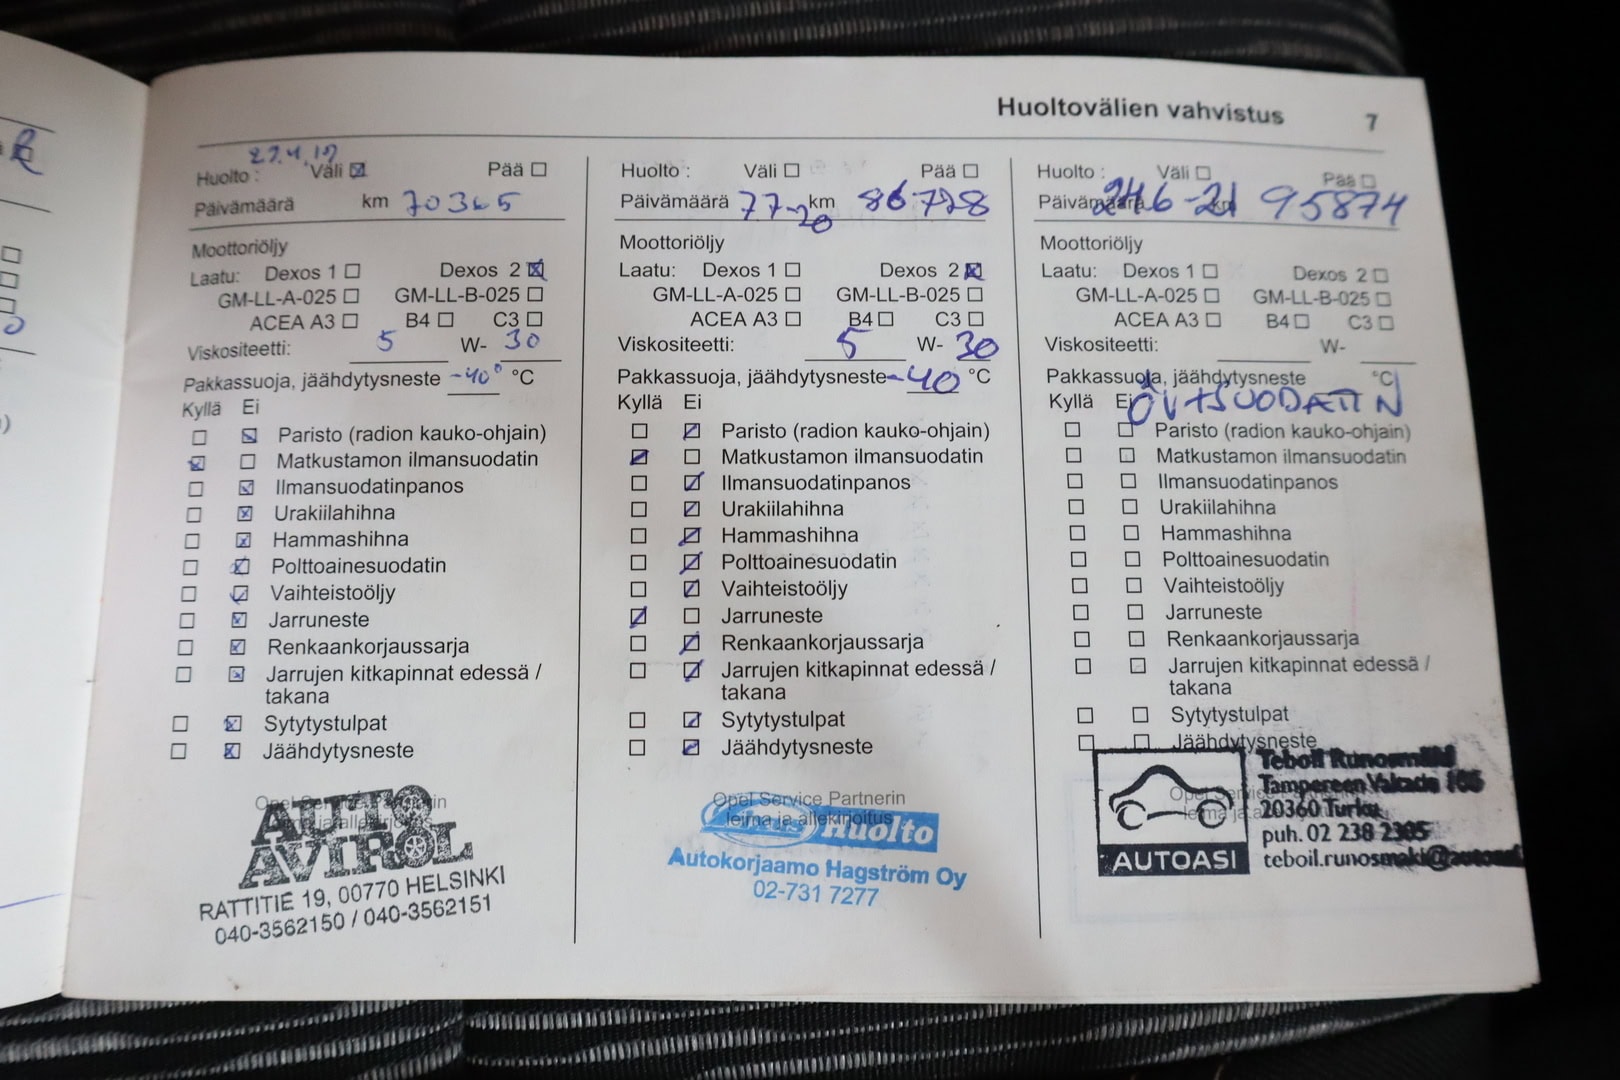 Huoltovälien vahvistus 7
Huolto : Väli
Pää
Päivämäärä km 70365
Moottoriöljy
Laatu: Dexos 1 Dexos 2
GM-LL-A-025 GM-LL-B-025
ACEA A3 B4 C3
Viskositeetti: 5 W- 30
Pakkassuoja, jäähdytysneste -40° °C
Kyllä Ei
Paristo (radion kauko-ohjain)
Matkustamon ilmansuodatin
Ilmansuodatinpanos
Urakiilahihna
Hammashihna
Polttoainesuodatin
Vaihteistoöljy
Jarruneste
Renkaankorjaussarja
Jarrujen kitkapinnat edessä /
takana
Sytytystulpat
Jäähdytysneste
Opel Service Partnerin
AUTO
AVIROL
RATTITIE 19, 00770 HELSINKI
040-3562150 / 040-3562151
Huolto : Väli Pää
Päivämäärä 77-20 km 86728
Moottoriöljy
Laatu: Dexos 1 Dexos 2
GM-LL-A-025 GM-LL-B-025
ACEA A3 B4 C3
Viskositeetti: 5 W- 30
Pakkassuoja, jäähdytysneste -40 °C
Kyllä Ei
Paristo (radion kauko-ohjain)
Matkustamon ilmansuodatin
Ilmansuodatinpanos
Urakiilahihna
Hammashihna
Polttoainesuodatin
Vaihteistoöljy
Jarruneste
Renkaankorjaussarja
Jarrujen kitkapinnat edessä /
takana
Sytytystulpat
Jäähdytysneste
Opel Service Partnerin
leima ja allekirjoitus
Huolto
Autokorjaamo Hagström Oy
02-731 7277
Huolto : Väli Pää
Päivämäärä 24.6-21 km 95874
Moottoriöljy
Laatu: Dexos 1 Dexos 2
GM-LL-A-025 GM-LL-B-025
ACEA A3 B4 C3
Viskositeetti: W-
Pakkassuoja, jäähdytysneste °C
Kyllä Ei
Paristo (radion kauko-ohjain)
Matkustamon ilmansuodatin
Ilmansuodatinpanos
Urakiilahihna
Hammashihna
Polttoainesuodatin
Vaihteistoöljy
Jarruneste
Renkaankorjaussarja
Jarrujen kitkapinnat edessä /
takana
Sytytystulpat
Jäähdytysneste
AUTOASI
Teboil Runosmäki
Tampereen Valtatie
20360 Turku
puh. 02 238 2305